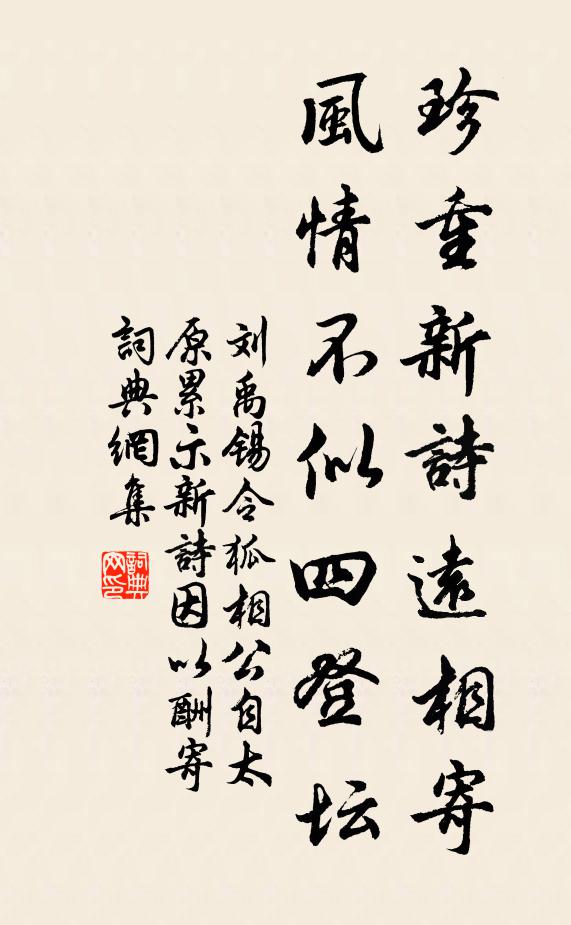 珍重新詩遠相寄
風情不似四登坛
刘禹锡令狐相公自太
原累示新詩因以酬寄
詞典網集
詞典网印